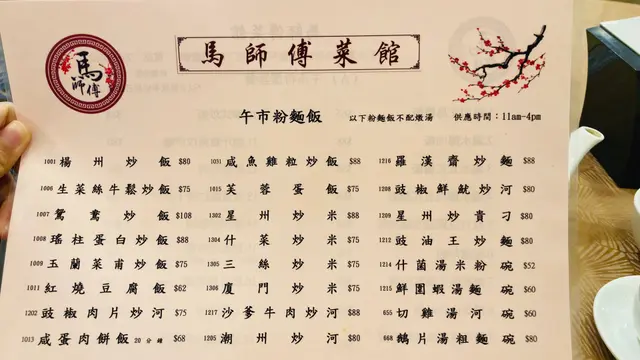 馬師傅
馬師傅菜館
午市粉麵飯 以下粉麵飯不配燉湯 供應時間：11am-4pm
1001 楊州炒飯 $80
1006 生菜絲牛鬆炒飯 $75
1007 鴛鴦炒飯 $108
1008 瑤柱蛋白炒飯 $88
1009 玉蘭菜甫炒飯 $75
1011 紅燒豆腐飯 $62
1202 豉椒肉片炒河 $75
1013 咸蛋肉餅飯 20分鐘 $68
1031 咸魚雞粒炒飯 $88
1015 芙蓉蛋飯 $75
1302 星州炒米 $88
1304 什菜炒米 $75
1305 三絲炒米 $75
1306 廈門炒米 $75
1217 沙爹牛肉炒河 $88
1205 潮州炒河 $80
1216 羅漢齋炒麵 $88
1208 豉椒鮮魷炒河 $80
1209 星州炒貴刁 $80
1212 豉油王炒麵 $80
1214 什菌湯米粉 碗 $52
1215 鮮圍蝦湯麵 碗 $60
655 切雞湯河 碗 $60
668 鵝片湯粗麵 碗 $80